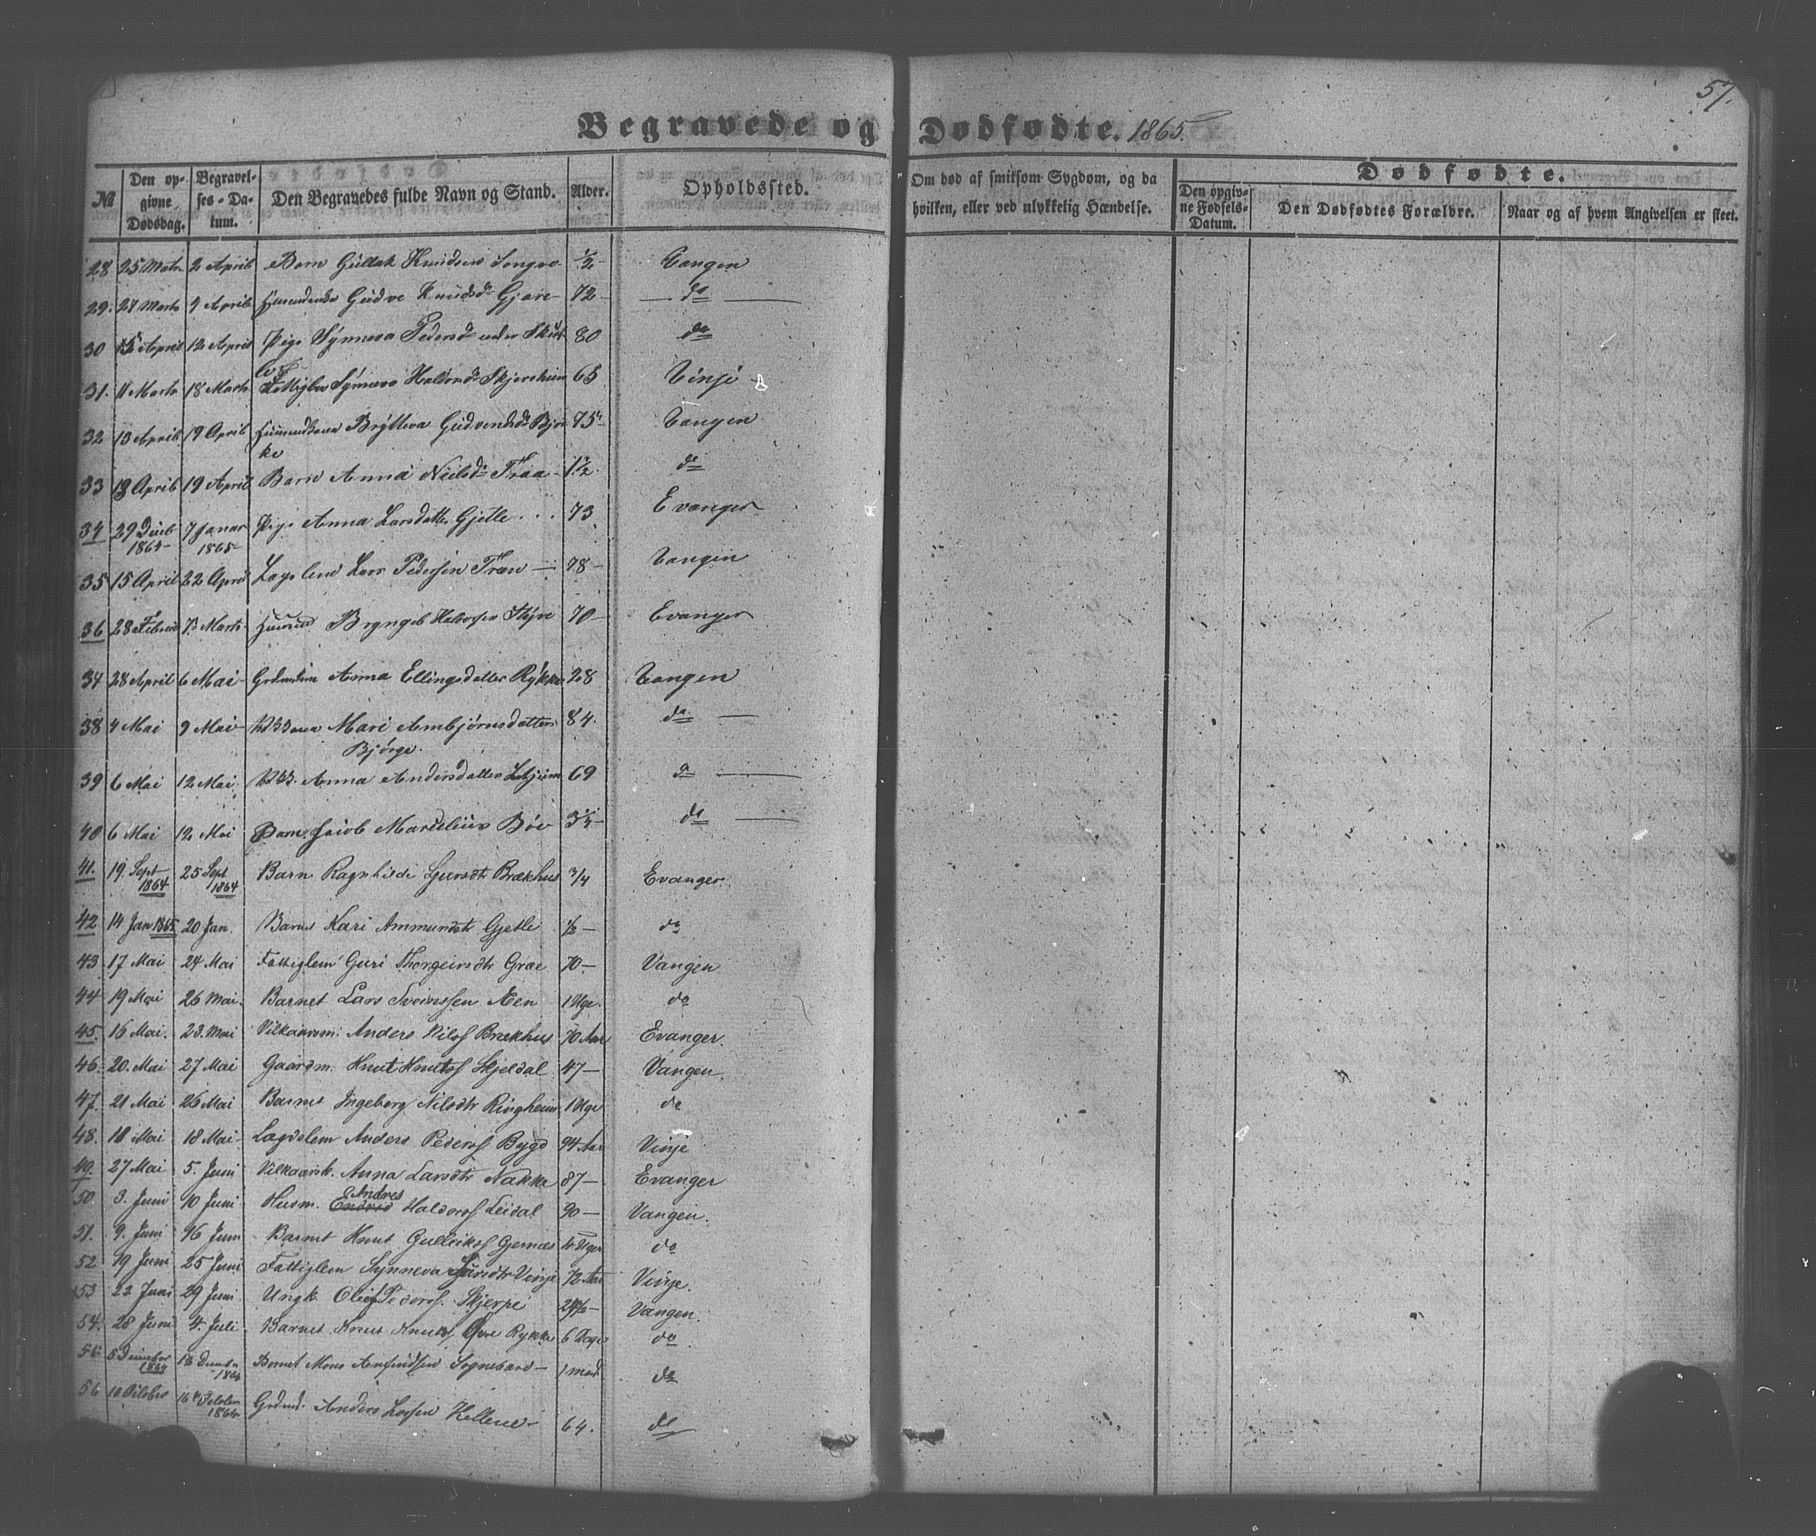 57.
Begravede og Dødfødte. 1865.
№ Den opgivne Dødsdag. Begravelses-Datum. Den Begravedes fulde Navn og Stand. Alder. Opholdssted. Om død af smitsom Sygdom, og da hvilken, eller ved ulykkelig Hændelse. Dødfødte. Den opgivne Fødsels-Datum. Den Dødfødtes Forældre. Naar og af hvem Angivelsen er skeet.
28 25 Marts 2 April Barn Gullak Knudsen 1/2 - Vangen
29. 27 Marts 4 April Gudve Knudsdr Gjære - 72 - do
30 15 April 12 April Pige Synneva Pedersdr under 80 do
31. 11 Marts 18 Marts Synneva Skjersheim 65 Vinje
32 13 April 19 April Bryteva Bjørke 75 - Vangen
33 13 April 19 April Barn Anna Neilsdr Traa - 1 1/2 do
34 29 Decb 1864 - 7 Januar 1865 - Pige Anna Larsdatter Gjetle . . . 73 Evanger
35 15 April 22 April Lars Pedersen 78 - Vangen
36 28 Februar 7 Marts Bryngel Halvorsen Styve 70 - Evanger
37 28 April 6 Mai Anna Ellingsdatter Rykke 28 Vangen
38 4 Mai 9 Mai Mari Arnbjørnsdatter Bjørge. 84. do
39 6 Mai 12 Mai Anna Andersdatter 69 do
40 6 Mai 12 Mai Barn Jacob Bøe 3 1/4 - do
41. 19. Sept 1864 25 Sept 1864 Barn Ragnhilde Sjursdtr Brækhus 3/4 Evanger.
42 14 Jan 1865 20 Jan. Barnet Kari Ammundsdtr Gjetle 1/2 - do
43 17 Mai 24 Mai Fattiglem Guri Thorgeirsdtr Græe 70. - Vangen
44 19 Mai 26 Mai. Barnet Lars Sveinssen Æen 1 Uge. do
45. 16 Mai. 23. Mai Vilkaarsm. Anders Nilsf Brækhus 70 Aar Evanger.
46. 20. Mai 27 Mai Gaardm. Knut Knutsf Skjeldal 47 - Vangen.
47. 21 Mai 26 Mai Barnet Ingeborg Nilsdtr Ringheim 1 Uge do
48. 11 Mai 18 Mai - Lægdslem Anders Pedersf Bygd 94 Aar Vinje
49. 27 Mai 5. Juni Vilkaarsk. Anna Larsdtr Nakke 87 - Evanger
50. 3. Juni 10 Juni Husm. Endres Andres Haldorsf Leidal 90 - Vangen.
51. 9. Juni 16 Juni Barnet Knut Gulleiksf Gjernæs 4 Uger do
52 19 Juni 25 Juni Fattiglem Synneva Sjursdtr Vinje 72 Aar Vinje.
53 22 Juni 29 Juni Ungk. Ole Pedersf. Skjerpe 24 1/2 - Vangen.
54. 28 Juni 4. Juli Barnet Knut Knutsf Øvre Rykke 6 Dage do
55 5 December 1864 12 Decembr 1864 Barnet Mons Arnfindsen - 1 mad do
56 10 October 16 October 1864 Anders Larsen 64. do